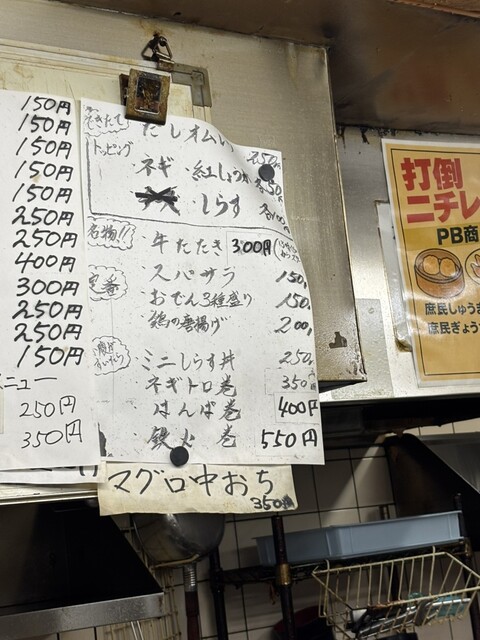 150円
150円
150円
150円
150円
250円
250円
400円
300円
250円
250円
150円
ニュー
250円
350円
できたて
だしオムレツ 250円
トッピング
ネギ・紅しょうが 各50円
・しらす 各100円
名物!!
・牛たたき 300円
・スパサラ 150円
定番
・おでん3種盛り 150円
・鶏の唐揚げ 200円
・ミニしらす丼 250円
・ネギトロ巻 350円
・はんぱ巻 400円
・鉄火巻 550円
マグロ中おち
350円
打倒
ニチレ
PB商
庶民しゅう
庶民ぎょう